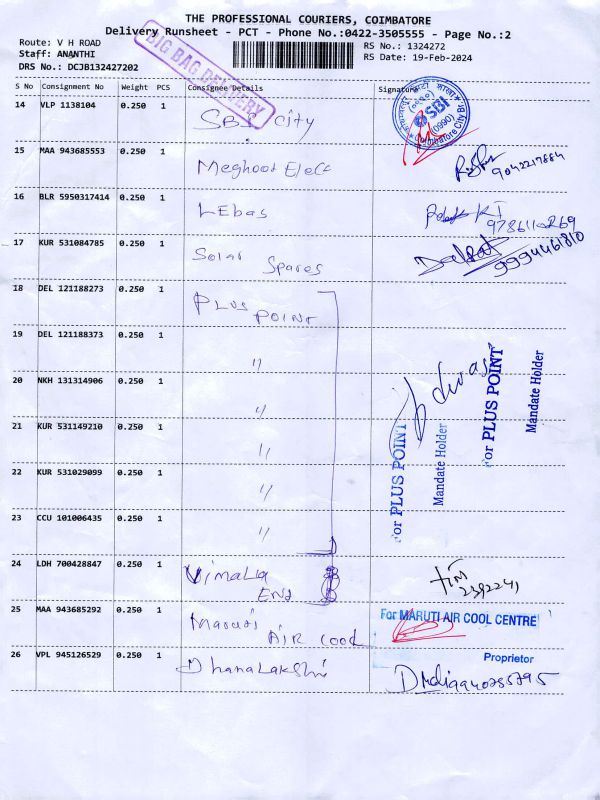 THE PROFESSIONAL COURIERS, COIMBATORE
Delivery Runsheet - PCT - Phone No.:0422-3505555 - Page No.:2
Route: V H ROAD
Staff: ANANTHI
DRS No.: DCJB132427202
RS No.: 1324272
RS Date: 19-Feb-2024
BIG BAG DELIVERY
S No Consignment No Weight PCS Consignee Details Signature
14 VLP 1138104 0.250 1 SBI city
SBI
(0990)
Coimbatore City Br
15 MAA 943685553 0.250 1 Meghoot Elect
9042217884
16 BLR 5950317414 0.250 1 Lebas
17 KUR 531084785 0.250 1 Solar Spares
9994461810
18 DEL 121188273 0.250 1 PLUS POINT
19 DEL 121188373 0.250 1 "
20 NKH 131314906 0.250 1 "
21 KUR 531149210 0.250 1 "
22 KUR 531029099 0.250 1 "
23 CCU 101006435 0.250 1 "
For PLUS POINT
Mandate Holder
For PLUS POINT
Mandate Holder
24 LDH 700428847 0.250 1 Vimala Ent
2392241
25 MAA 943685292 0.250 1 Maruti Air Cool
For MARUTI AIR COOL CENTRE
Proprietor
26 VPL 945126529 0.250 1 Dhanalakshi